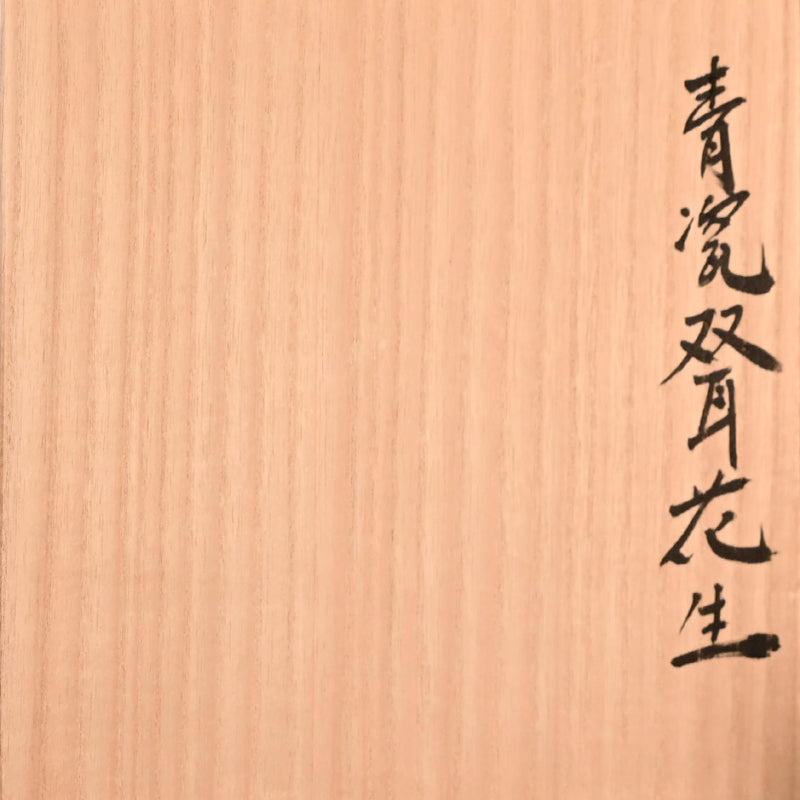 青瓷双耳花生